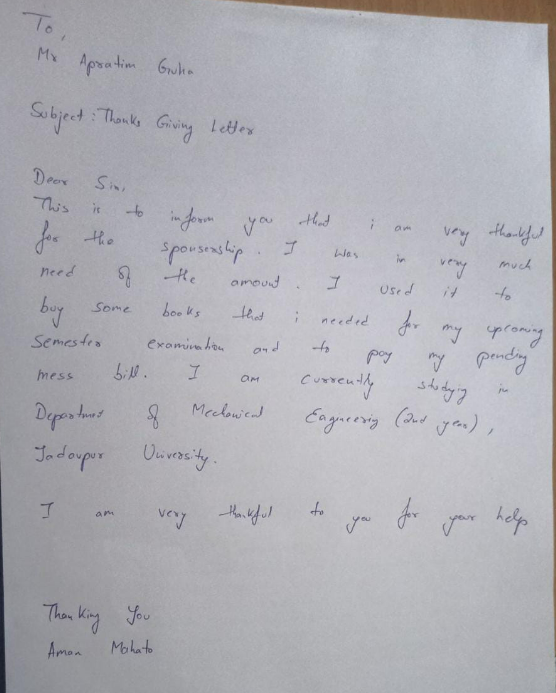 To,
Mr Apratim Guha
Subject : Thanks Giving Letter
Dear Sir,
This is to inform you that i am very thankful
for the sponsership. I was in very much
need of the amount. I used it to
buy some books that i needed for my upcoming
semester examination and to pay my pending
mess bill. I am currently studying in
Department of Mechanical Engineering (2nd year),
Jadavpur University.
I am very thankful to you for your help
Thanking You
Aman Mahato